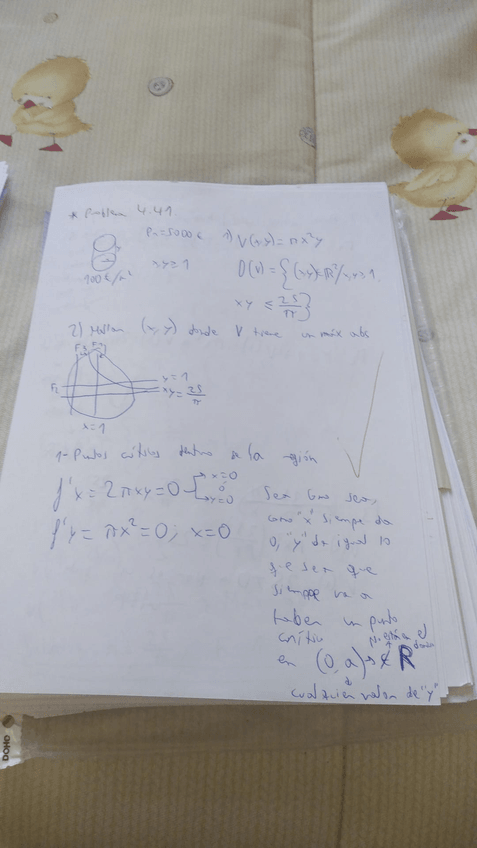 * Problema 4.41
Pr=5000€ 1) V(x,y)=πx²y
x,y≥1 D(V)={(x,y)∈ℝ²/x,y≥1
100€/m² xy ≤ 25/π}
2) Hallar (x,y) donde V tiene un máx abs
y=1
xy=25/π
x=1
1- Puntos críticos dentro de la región
f'x=2πxy=0 → x=0 ó y=0
f'y=πx²=0; x=0
Sea como sea,
como "x" siempre da
0, "y" da igual lo
que sea que
siempre va a
haber un punto
crítico
en (0,a)→∉R
cualquier valor de "y"
DOHO